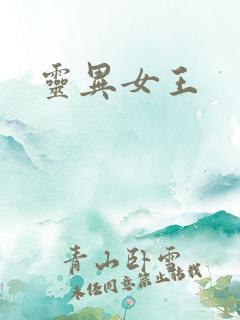 靈異女王
青山卧雪
未经同意禁止转载